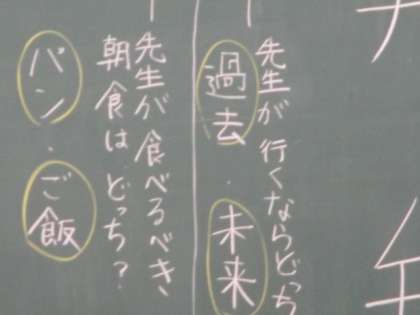 先生が行くならどっち
過去・未来
先生が食べるべき
朝食はどっち？
パン・ご飯